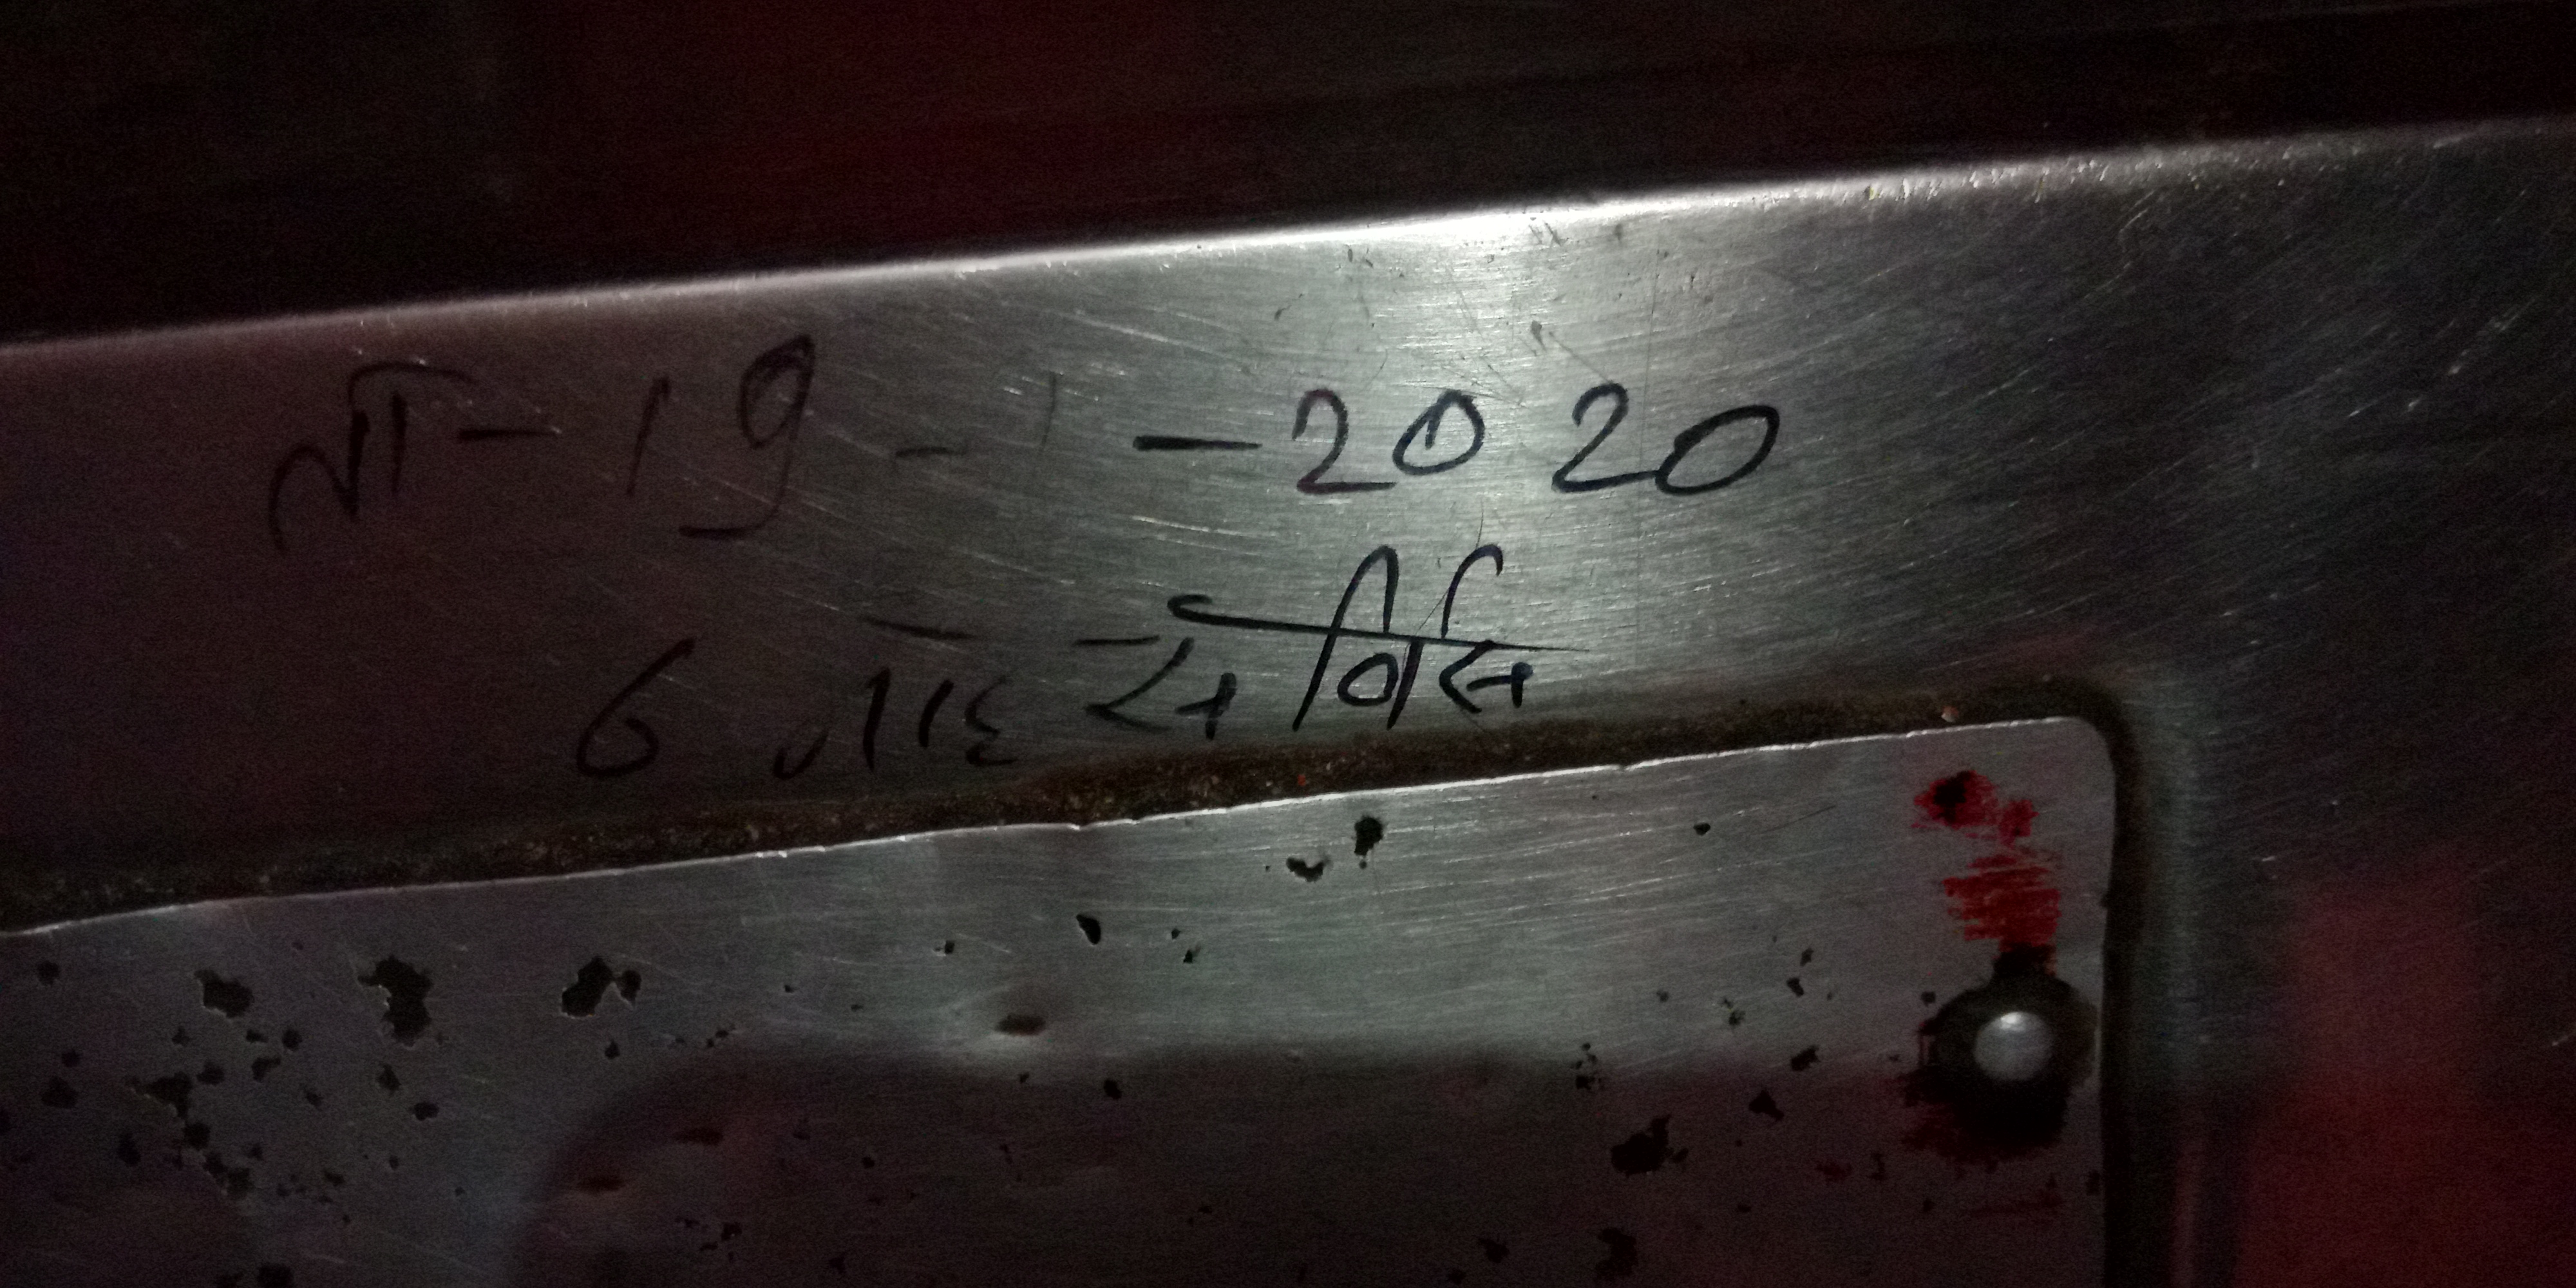 ता-19-1-2020
6 माह सर्विस